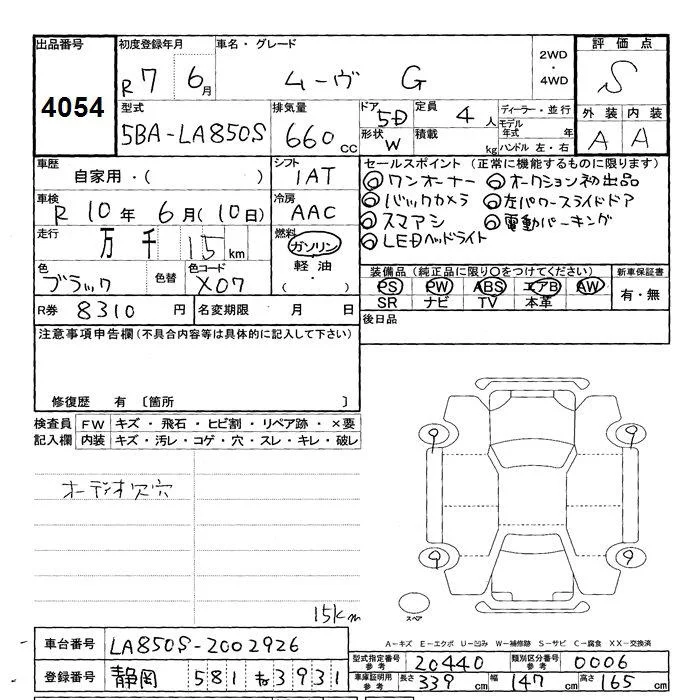 出品番号 初度登録年月 車名・グレード 2WD・4WD 評価点
4054 R7 6月 ムーヴ G S
型式 排気量 ドア 5D 定員 4人 ディーラー・並行 外装 内装
5BA-LA850S 660cc 形状 W 積載 kg モデル年式 年 ハンドル 左・右 A A
車歴 シフト セールスポイント (正常に機能するものに限ります)
自家用・( ) IAT ◎ワンオーナー ◎オークション初出品
車検 冷房 ◎バックカメラ ◎左パワースライドドア
R 10年 6月(10日) AAC ◎スマアシ ◎電動パーキング
走行 万 千 15km 燃料 ガソリン ◎LEDヘッドライト
軽油・( )
色 色替 色コード 装備品 (純正品に限り○をつけてください) 新車保証書
ブラック X07 PS PW ABS エアB AW 有・無
SR ナビ TV 本革
R券 8310円 名変期限 月 日 後日品
注意事項申告欄 (不具合内容等は具体的に記入して下さい)
修復歴 有 〔箇所 〕
検査員記入欄 FW キズ・飛石・ヒビ割・リペア跡・×要
内装 キズ・汚レ・コゲ・穴・スレ・キレ・破レ
オーディオ欠穴
9 9
9 9
15km
スペア
A-キズ E-エクボ U-凹み W-補修跡 S-サビ C-腐食 XX-交換済
車台番号 LA850S-2002926
型式指定番号 参考 20440 類別区分番号 参考 0006
登録番号 静岡 581 を 3931
車庫証明用 参考 長さ 339cm 幅 147cm 高さ 165cm